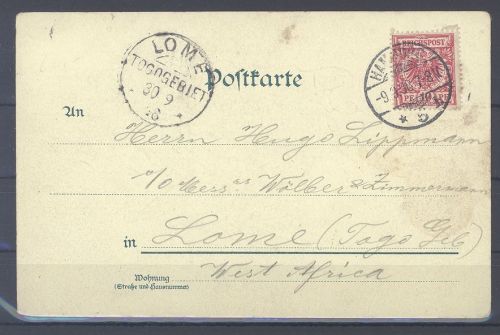 LOME
TOGOGEBIET
30 9
Postkarte
REICHSPOST
An
Herrn Hugo Lippmann
Wölber & Zimmermann
in Lome (Togo Geb)
West Africa
Wohnung
(Straße und Hausnummer)